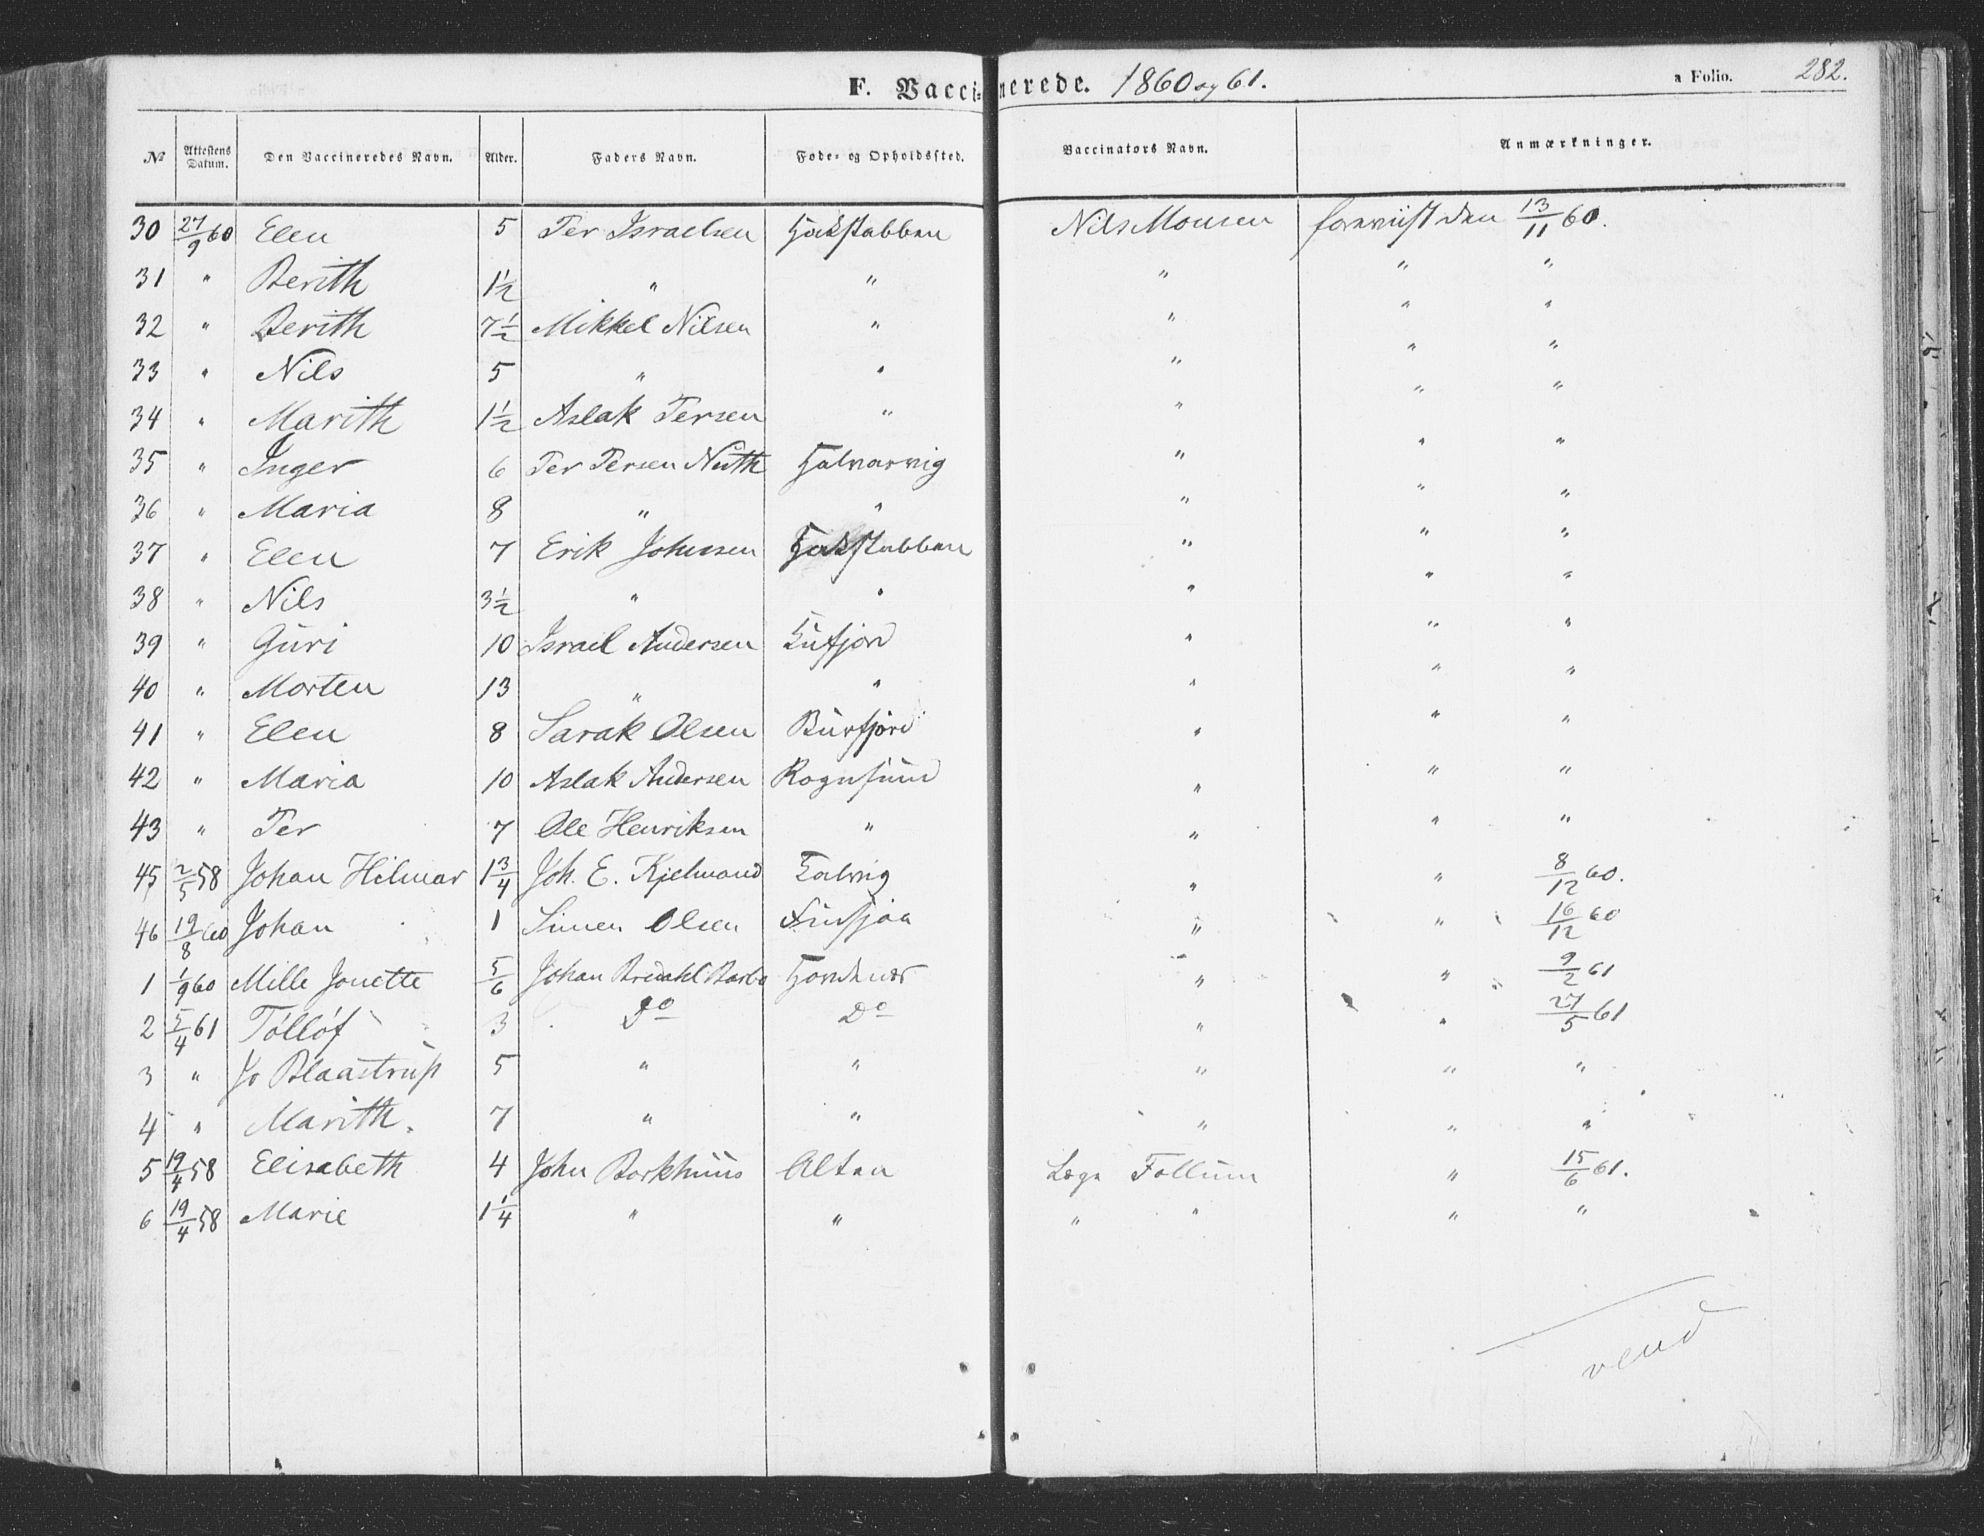 F. Vaccinerede. 1860 og 61. a Folio. 282.
№ Attestens Datum. Den Vaccineredes Navn. Alder. Faders Navn. Føde- og Opholdssted. Vaccinators Navn. Anmærkninger.
30 27/9 60 Elen 5 Per Israelsen Hakstabben Nils Monsen foreviist den 13/11 60.
31 " Berith 1 1/2 " " " " "
32 " Berith 7 1/2 Mikkel Nilsen " " " "
33 " Nils 5 " " " " "
34 " Marith 1 1/2 Aslak Persen " " " "
35 " Inger 6 Per Persen Nuth Halvarvig " " "
36 " Maria 8 " " " " "
37 " Elen 7 Erik Johnsen Hakstabben " " "
38 " Nils 3 1/2 " " " " "
39 " Guri 10 Israel Andersen Kufjord " " "
40 " Morten 13 " " " " "
41 " Elen 8 Sarak Olsen Burfjord " " "
42 " Maria 10 Aslak Andersen Rognsund " " "
43 " Per 7 Ole Henriksen " " " "
45 2/5 58 Johan Hilmar 1 3/4 Joh. E. Kjelmand Talvig " " 8/12 60.
46 19/8 60 Johan 1 Simen Olsen " " 16/12 60
1 1/9 60 Mille Jonette 5/6 Johan Bredahl Barbo " " 9/2 61
2 5/4 61 Tølløf 3 Do Do " " 27/5 61
3 " Jo Blaastrup 5 " " " " "
4 " Marith. 7 " " " " "
5 19/4 58 Elisabeth 4 John Borkhuus Alten Læge Follum " 15/6 61.
6 19/4 58 Marie 1 1/4 " " " " " "
vend